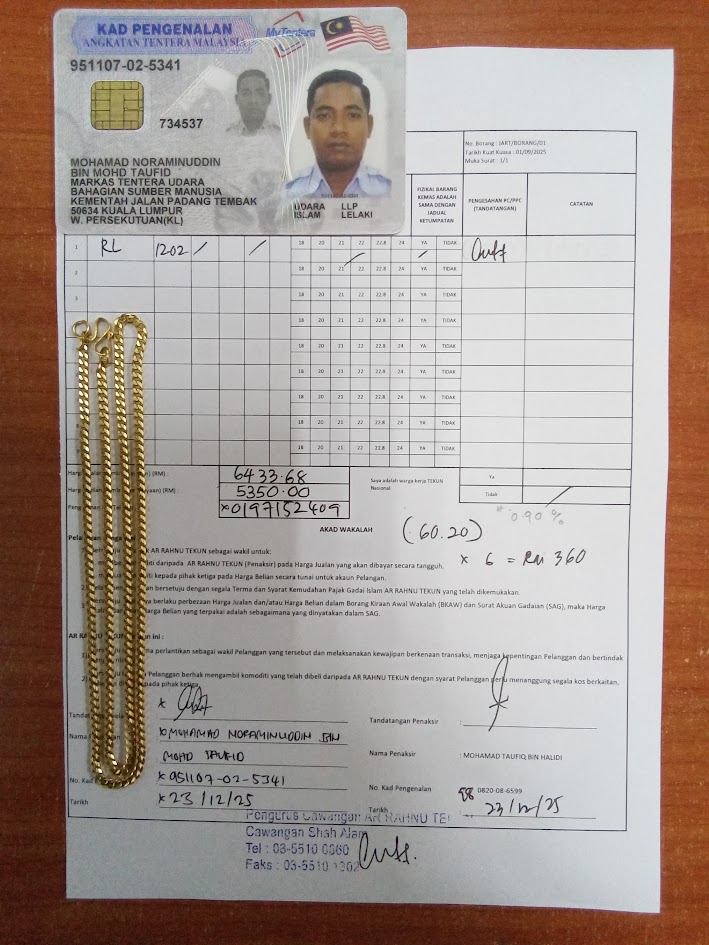 KAD PENGENALAN
ANGKATAN TENTERA MALAYSIA
MyTentera
951107-02-5341
734537
MOHAMAD NORAMINUDDIN
BIN MOHD TAUFID
MARKAS TENTERA UDARA
BAHAGIAN SUMBER MANUSIA
KEMENTAH JALAN PADANG TEMBAK
50634 KUALA LUMPUR
W. PERSEKUTUAN(KL)
UDARA LLP
ISLAM LELAKI
No. Borang : JART/BORANG/01
Tarikh Kuat Kuasa : 01/09/2025
Muka Surat : 1/1
FIZIKAL BARANG KEMAS ADALAH SAMA DENGAN JADUAL KETUMPATAN
PENGESAHAN PC/PPC (TANDATANGAN)
CATATAN
1 RL 1202 / / 18 20 21 22 22.8 24 YA TIDAK
2 18 20 21 22 22.8 24 YA TIDAK
3 18 20 21 22 22.8 24 YA TIDAK
18 20 21 22 22.8 24 YA TIDAK
18 20 21 22 22.8 24 YA TIDAK
18 20 21 22 22.8 24 YA TIDAK
18 20 21 22 22.8 24 YA TIDAK
18 20 21 22 22.8 24 YA TIDAK
18 20 21 22 22.8 24 YA TIDAK
(RM) : 6433.68
(RM) : 5350.00
x0197152409
Saya adalah warga kerja TEKUN Nasional
Ya
Tidak /
* 0.90 %
AKAD WAKALAH
(60.20)
x 6 = RM 360
AR RAHNU TEKUN sebagai wakil untuk:
daripada AR RAHNU TEKUN (Penaksir) pada Harga Jualan yang akan dibayar secara tangguh.
kepada pihak ketiga pada Harga Belian secara tunai untuk akaun Pelanggan.
bersetuju dengan segala Terma dan Syarat Kemudahan Pajak Gadai Islam AR RAHNU TEKUN yang telah dikemukakan.
berlaku perbezaan Harga Jualan dan/atau Harga Belian dalam Borang Kiraan Awal Wakalah (BKAW) dan Surat Akuan Gadaian (SAG), maka Harga
Harga Belian yang terpakai adalah sebagaimana yang dinyatakan dalam SAG.
ini :
perlantikan sebagai wakil Pelanggan yang tersebut dan melaksanakan kewajipan berkenaan transaksi, menjaga kepentingan Pelanggan dan bertindak
Pelanggan berhak mengambil komoditi yang telah dibeli daripada AR RAHNU TEKUN dengan syarat Pelanggan perlu menanggung segala kos berkaitan,
pada pihak ketiga.
x
Tandatangan Penaksir :
x MOHAMAD NORAMINUDDIN BIN
MOHD TAUFID
Nama Penaksir : MOHAMAD TAUFIQ BIN HALIDI
No. Kad x 951107-02-5341
No. Kad Pengenalan 980820-08-6599
Tarikh x 23/12/25
Tarikh : 23/12/25
Pengurus Cawangan AR RAHNU TE
Cawangan Shah Alam
Tel : 03-5510 0360
Faks : 03-5510 1302